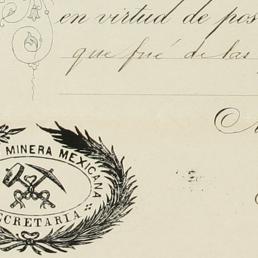 en virtud de pos
que fué de las
MINERA MEXICANA
SECRETARIA